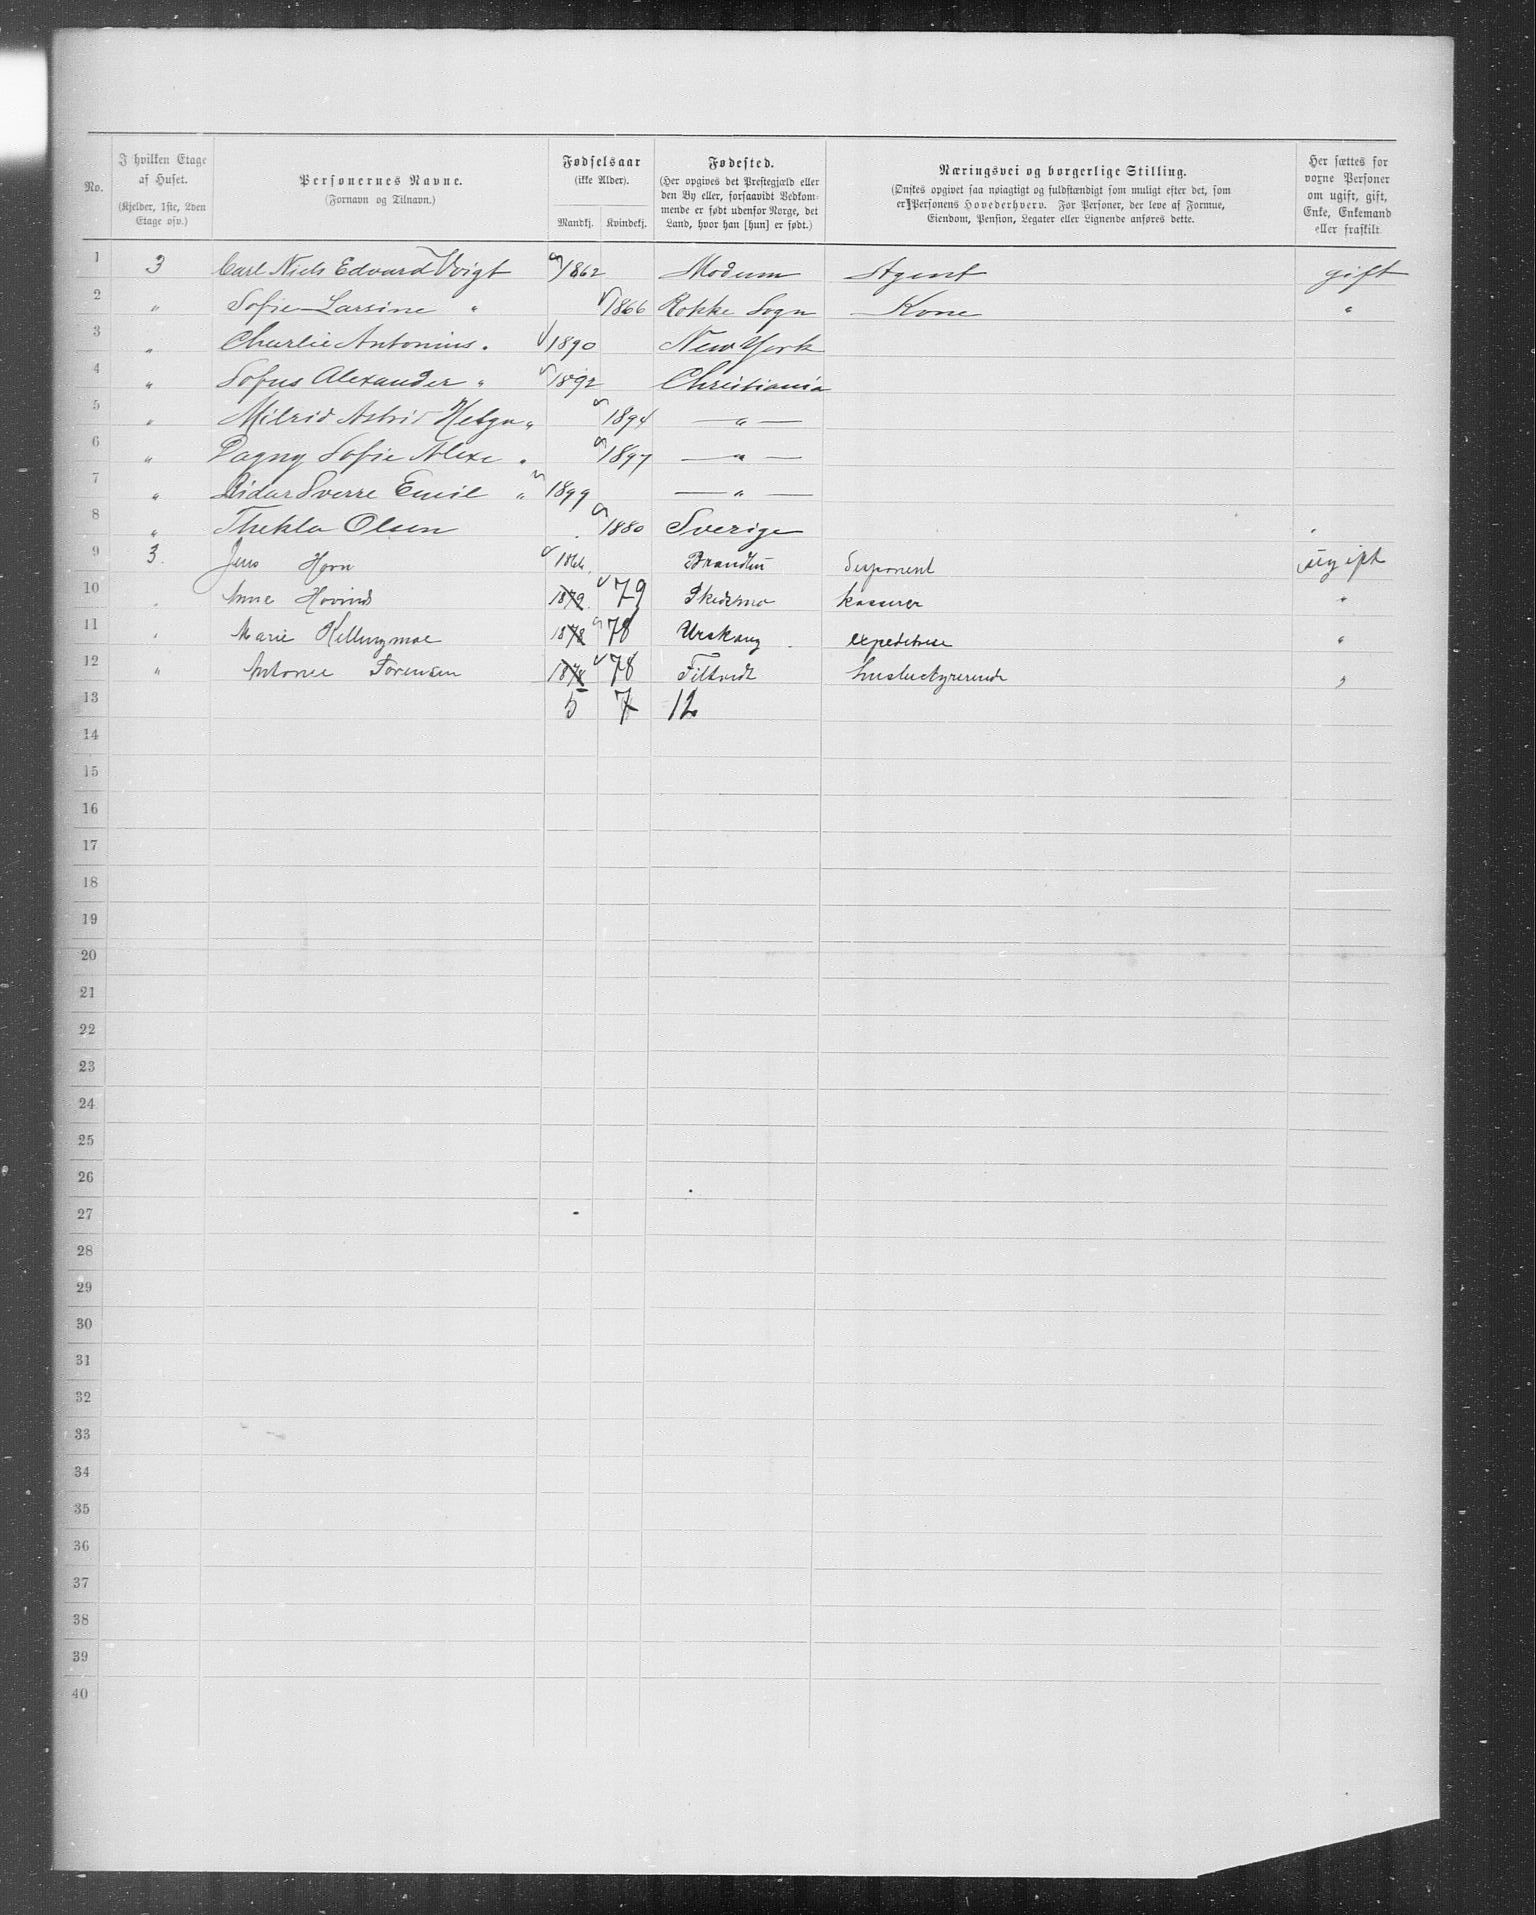 No.
I hvilken Etage af Huset. (Kjelder, 1ste, 2den Etage osv.)
Personernes Navne. (Fornavn og Tilnavn.)
Fødselsaar (ikke Alder). Mandkj. Kvindekj.
Fødested. (Her opgives det Prestegjæld eller den By eller, forsaavidt Vedkommende er født udenfor Norge, det Land, hvor han [hun] er født.)
Næringsvei og borgerlige Stilling. (Ønskes opgivet saa nøiagtigt og fuldstændigt som muligt efter det, som er Personens Hovederhverv. For Personer, der leve af Formue, Eiendom, Pension, Legater eller Lignende anføres dette.
Her sættes for voxne Personer om ugift, gift, Enke, Enkemand eller fraskilt
1 3 Carl Niels Edvard Voigt 1862 Modum Agent gift
2 " Sofie Larsine " 1866 Rokke Sogn Kone "
3 " Charlie Antonius " 1890 New York
4 " Sofus Alexander " 1892 Christiania
5 " Milrid Astrid Helga " 1894 — " —
6 " Dagny Sofie Alexe " 1897 — " —
7 " Reidar Sverre Emil " 1899 — " —
8 " Thekla Olsen 1880 Sverige
9 3. Jens Horn 1866 Brandbu disponent ugift
10 " Anne Hovind 1879 79 Skedsmo kasserer "
11 " Marie Killingmoe 1878 78 Urskoug expeditrise "
12 " Antonie Sørensen 1878 78 Filtvedt husbestyrerinde "
13 5 7 12
14
15
16
17
18
19
20
21
22
23
24
25
26
27
28
29
30
31
32
33
34
35
36
37
38
39
40